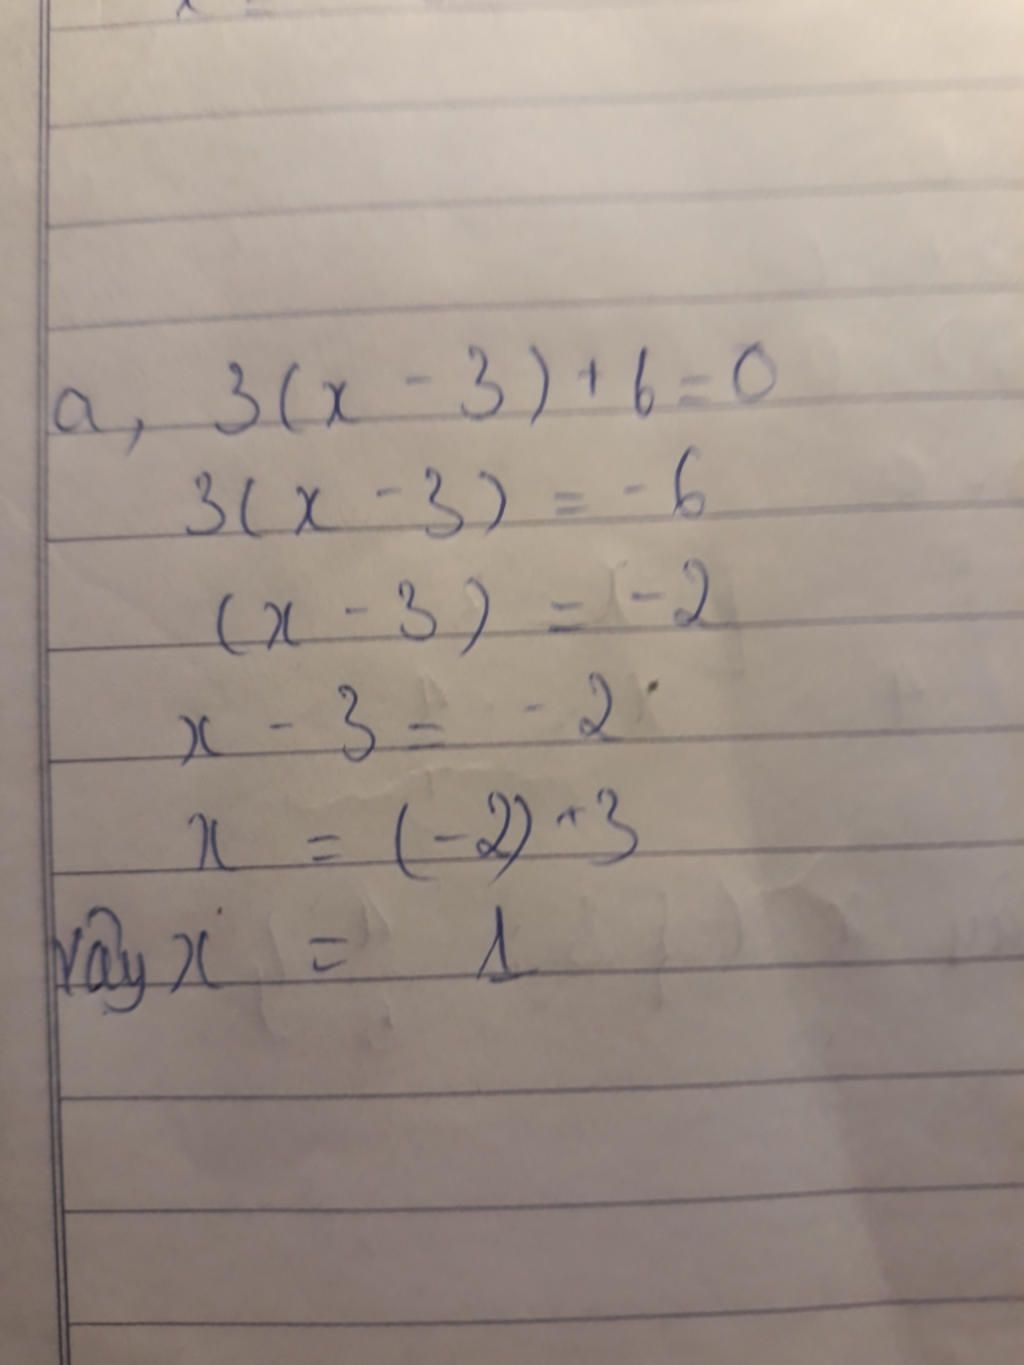 a, 3(x - 3) + 6 = 0
3(x - 3) = -6
(x - 3) = -2
x - 3 = -2
x = (-2) + 3
Vậy x = 1